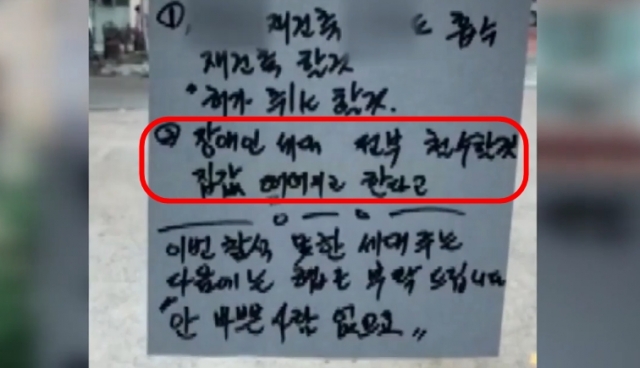 ① 재건축 는 흡수
재건축 할것
* 허가 취소 할것.
② 장애인 세대 전부 철수할것
집값 떨어지고 한다고
이번 참석 못한 세대주는
다음에는 협조 부탁 드립니다
* 안 바쁜 사람 없으요 〃